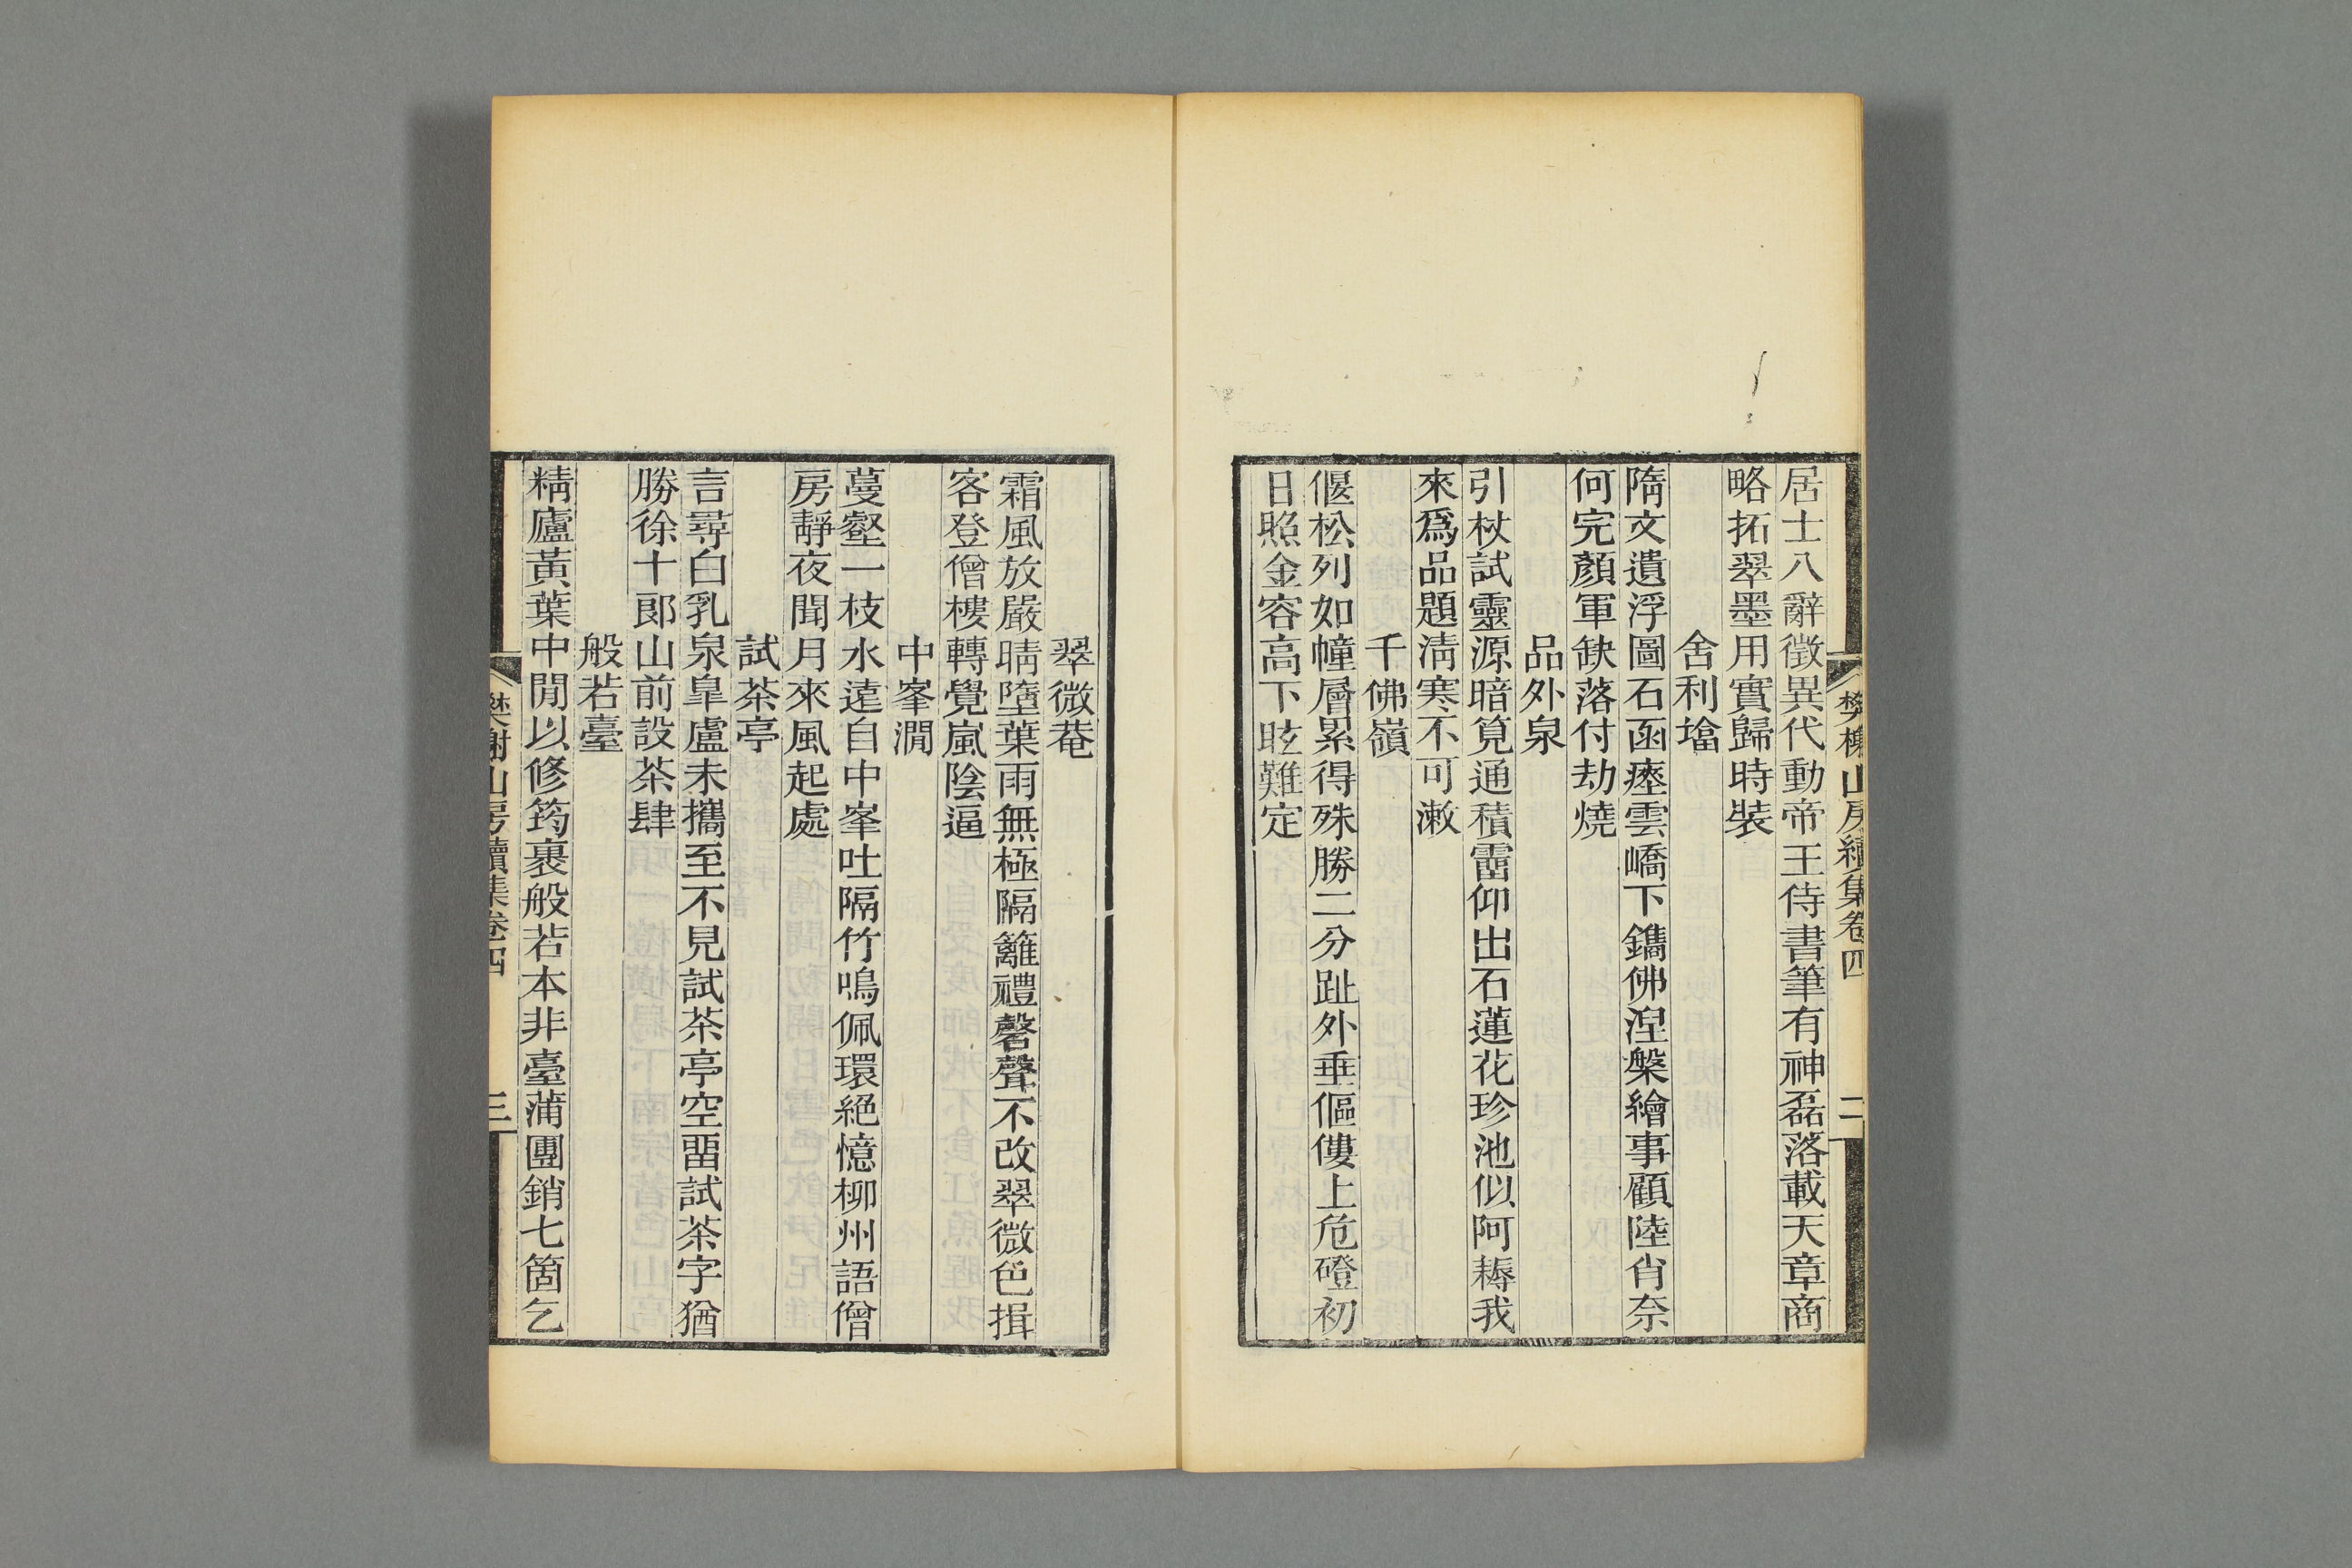 居士八辭徵異代動帝王侍書筆有神磊落載天章商
略拓翠墨用實歸時裝
舍利墖
隋文遺浮圖石函瘞雲嶠下鐫佛湼槃繪事顧陸肖奈
何完顏軍缺落付劫燒
品外泉
引杖試靈源暗筧通積霤仰出石蓮花珍池似阿耨我
來爲品題淸寒不可漱
千佛嶺
偃松列如幢層累得殊勝二分趾外垂傴僂上危磴初
日照金容高下眩難定
樊榭山房續集卷四
二
翠微菴
霜風放嚴晴墮葉雨無極隔籬禮磬聲不改翠微色揖
客登僧樓轉覺嵐陰逼
中峯澗
蔓壑一枝水遠自中峯吐隔竹鳴佩環絕憶柳州語僧
房靜夜聞月來風起處
試茶亭
言尋白乳泉皐盧未攜至不見試茶亭空畱試茶字猶
勝徐十郞山前設茶肆
般若臺
精廬黃葉中閒以修筠裹般若本非臺蒲團銷七箇乞
樊榭山房續集卷四
三